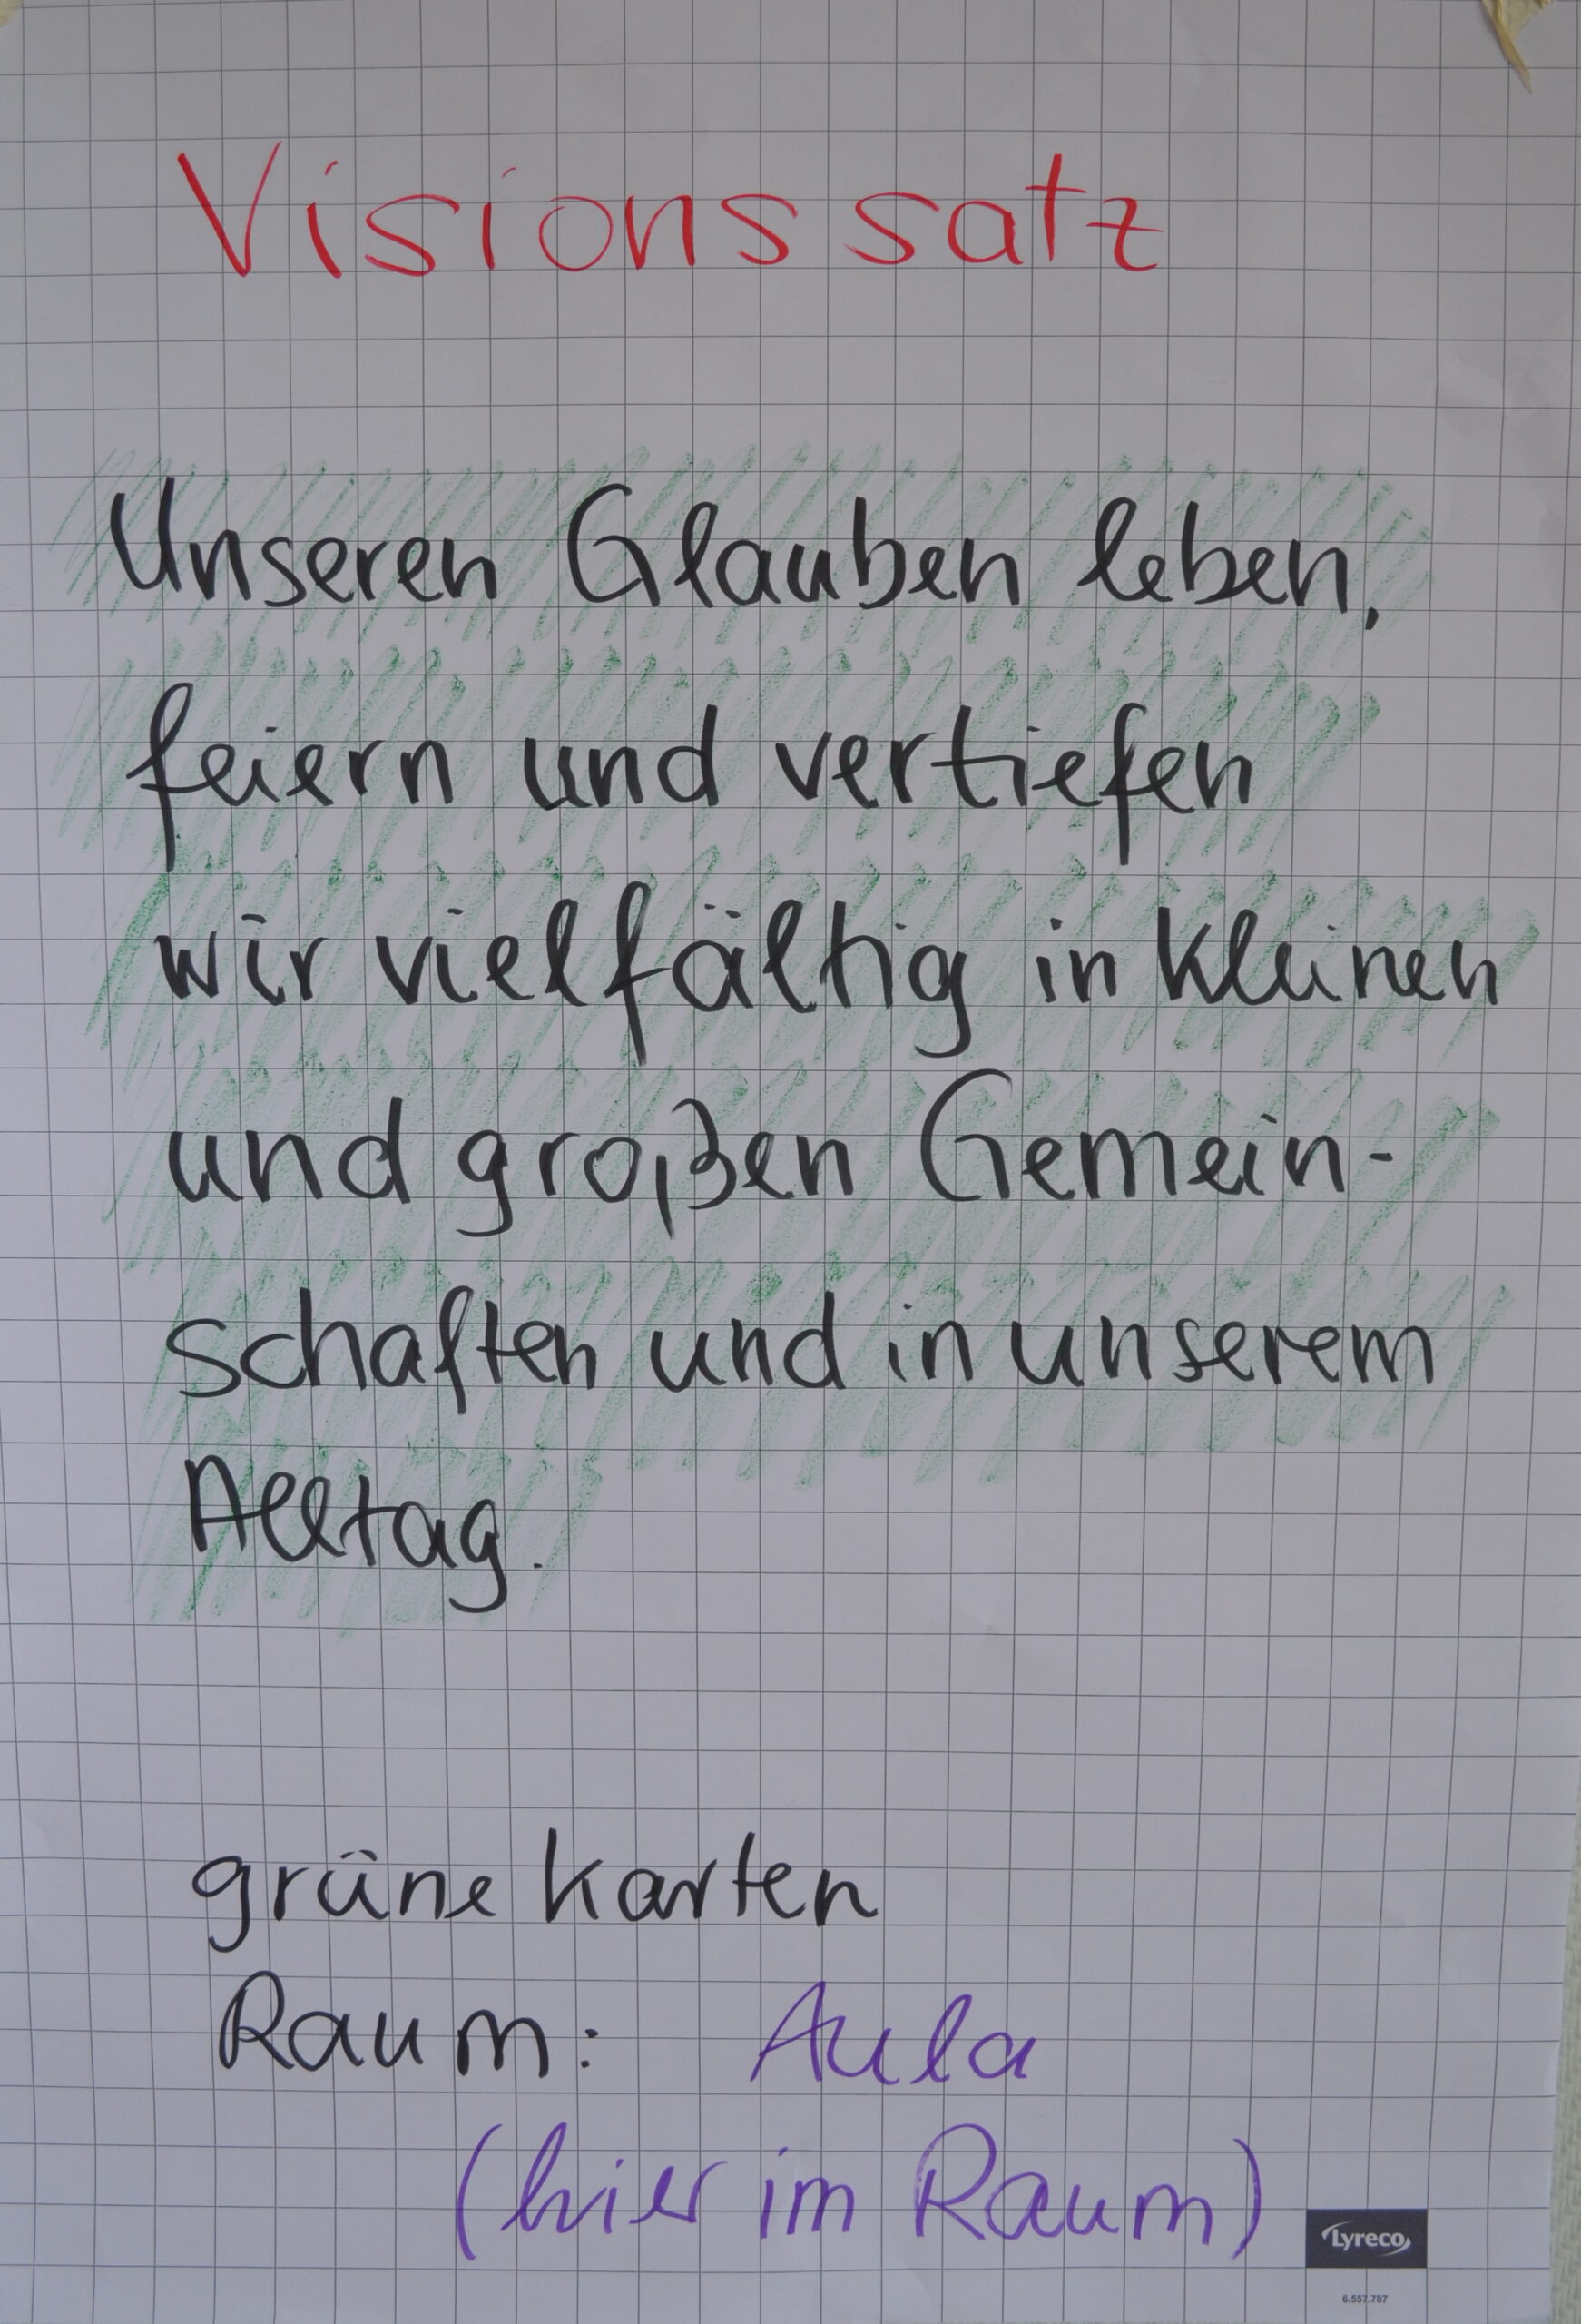 Visionssatz
Unseren Glauben leben,
feiern und vertiefen
wir vielfältig in kleinen
und großen Gemein-
schaften und in unserem
Alltag.
grüne Karten
Raum: Aula
(hier im Raum)
Lyreco
6.557.787